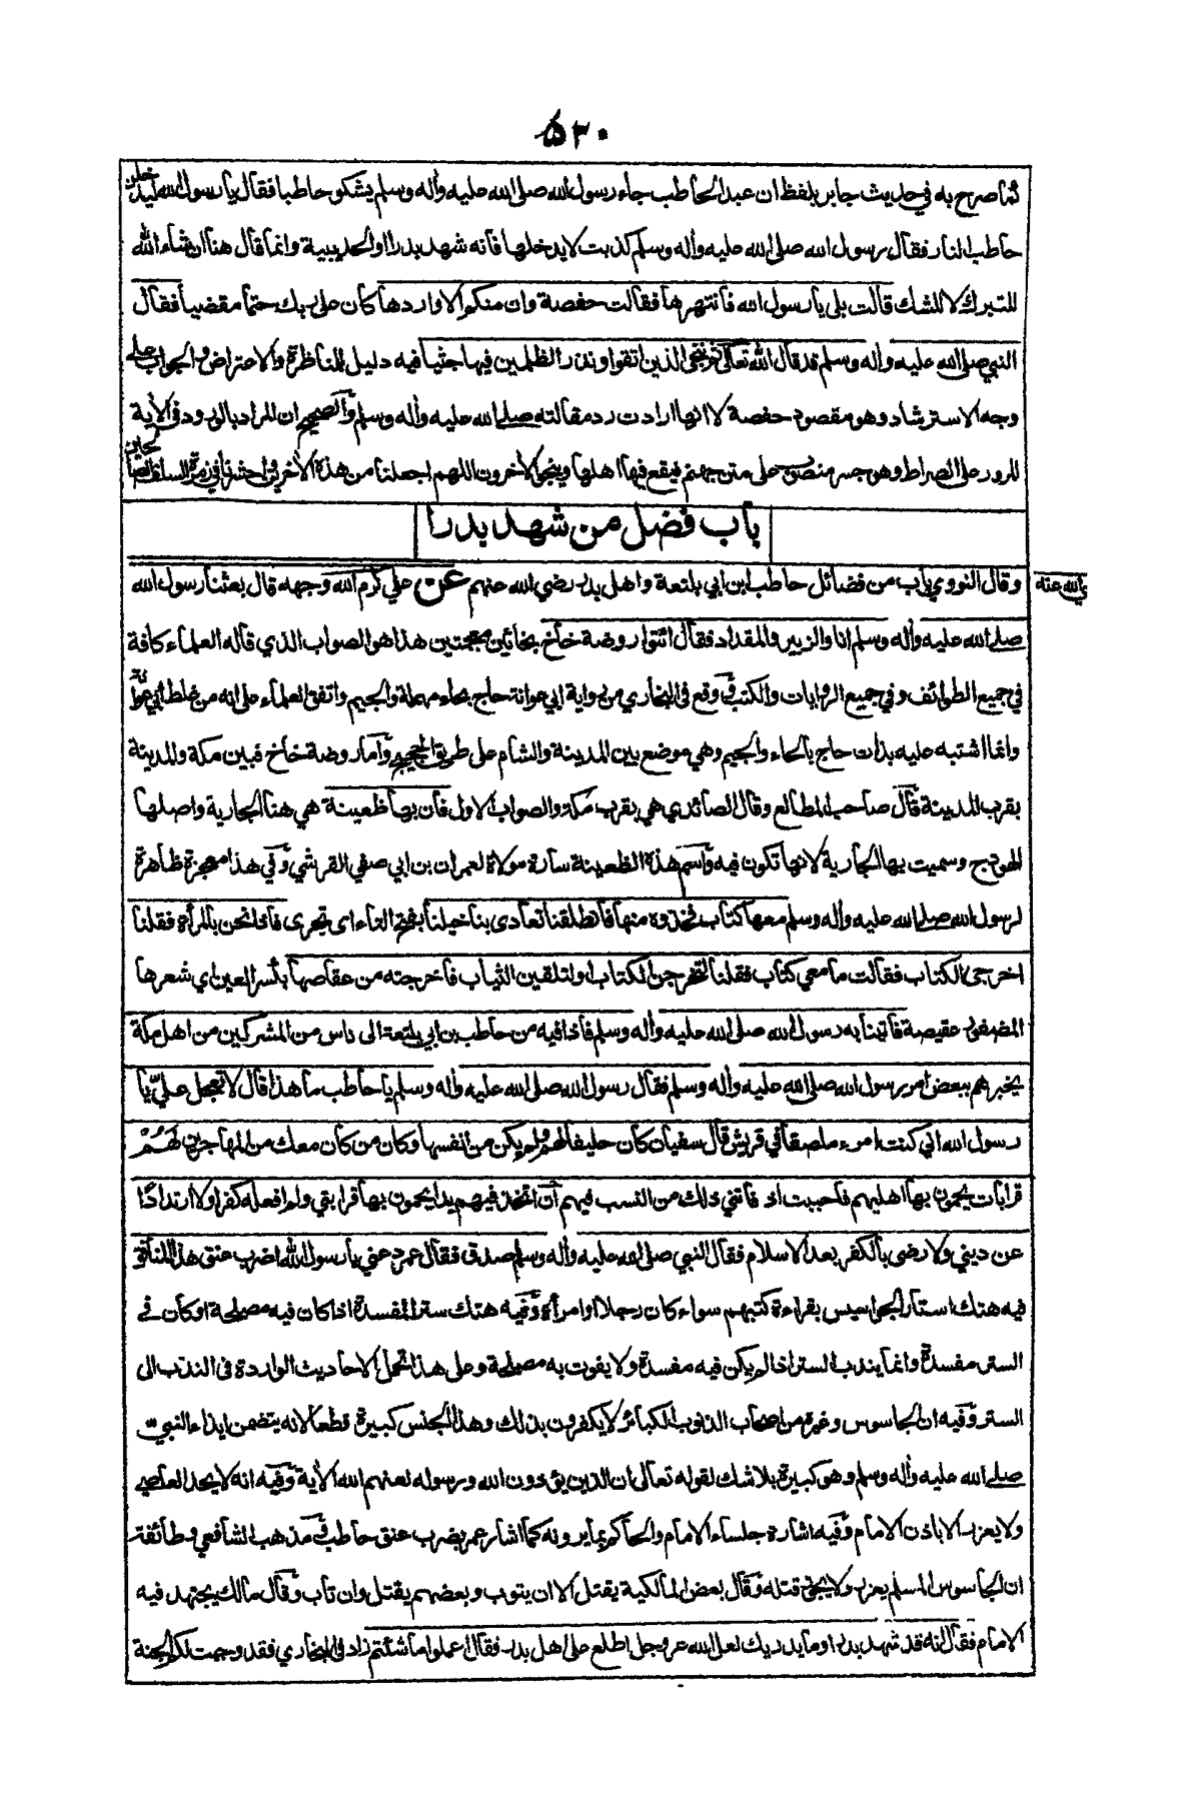 ٥٣٠
كما صرح به في حديث جابر بلفظ ان عبدا لحاطب جاء رسول الله صلى الله عليه وأله وسلم يشكو حاطبا فقال يا رسول الله ليدخلن
حاطب النار فقال رسول الله صلى الله عليه وأله وسلم كذبت لا يدخلها فانه شهد بدرا والحديبية وانما قال هنا ان شاء الله
للتبرك لا للشك قالت بلى يا رسول الله فانتهرها فقالت حفصة وان منكم الا واردها كان على ربك حتما مقضيا فقال
النبي صلى الله عليه وأله وسلم قد قال الله تعالى ثم ننجي الذين اتقوا ونذر الظلمين فيها جثيا فيه دليل للمناظرة والاعتراض والجواب على
وجه الاسترشاد وهو مقصود حفصة لا انها ارادت رد مقالته صلى الله عليه وأله وسلم والصحيح ان المراد بالورود في الأية
المرور على الصراط وهو جسر منصوب على متن جهنم فيقع فيها اهلها وينجي الأخرون اللهم اجعلنا من هذه الأخرين واحشرنا في زمرة السلف الصالحين
باب فضل من شهد بدرا
وقال النووي باب من فضائل حاطب ابن ابي بلتعة واهل بدر رضي الله عنهم عن علي كرم الله وجهه قال بعثنا رسول الله
صلى الله عليه وأله وسلم انا والزبير والمقداد فقال ائتوا روضة خاخ بخائين معجمتين هذا هو الصواب الذي قاله العلماء كافة
في جميع الطوائف وفي جميع الروايات والكتب ووقع في البخاري من رواية ابي عوانة حاج بحاء مهملة والجيم واتفق العلماء على انه من غلط ابي عوانة
وانما اشتبه عليه بذات حاج بالحاء والجيم وهي موضع بين المدينة والشام على طريق الحجيج وأما روضة خاخ فبين مكة والمدينة
بقرب المدينة قال صاحب المطالع وقال الصائدي هي بقرب مكة والصواب الاول فان بها ظعينة هي هنا الجارية واصلها
الهودج وسميت بها الجارية لانها تكون فيه واسم هذه الظعينة سارة مولاة لعمران بن ابي صفي القرشي وفي هذا معجزة ظاهرة
لرسول الله صلى الله عليه وأله وسلم معها كتاب فخذوه منها فانطلقنا تعادى بنا خيلنا بفتح التاء اى تجرى فاذا نحن بالمرأة فقلنا
اخرجي الكتاب فقالت ما معي كتاب فقلنا لتخرجن الكتاب او لتلقين الثياب فأخرجته من عقاصها بكسر العين اي شعرها
المضفور عقيصة فأتينا به رسول الله صلى الله عليه وأله وسلم فاذا فيه من حاطب بن ابي بلتعة الى ناس من المشركين من اهل مكة
يخبرهم ببعض امر رسول الله صلى الله عليه وأله وسلم فقال رسول الله صلى الله عليه وأله وسلم يا حاطب ما هذا قال لا تعجل عليّ يا
رسول الله اني كنت امرء ملصقا في قريش قال سفيان كان حليفا لهم ولم يكن من انفسها وكان من كان معك من المهاجرين لهم
قرابات يحمون بها اهليهم فأحببت اذ فاتني ذلك من النسب فيهم أن اتخذ فيهم يدا يحمون بها قرابتي ولم افعله كفرا ولا ارتدادًا
عن ديني ولا رضى بالكفر بعد الاسلام فقال النبي صلى الله عليه وأله وسلم صدق فقال عمر دعني يا رسول الله اضرب عنق هذا المنافق
فيه هتك استار الجواسيس بقراءة كتبهم سواء كان رجلا او امرأة وفيه هتك ستر المفسدة اذا كان فيه مصلحة او كان في
الستر مفسدة وانما يندب الستر اذا لم يكن فيه مفسدة ولا يفوت به مصلحة وعلى هذا تحمل الاحاديث الواردة في الندب الى
الستر وفيه ان الجاسوس وغيره من اصحاب الذنوب الكبائر لا يكفرون بذلك وهذا الجنس كبيرة قطعا لانه يتضمن ايذاء النبي
صلى الله عليه وأله وسلم وهو كبيرة بلا شك لقوله تعالى ان الذين يؤذون الله ورسوله لعنهم الله الأية وفيه انه لا يحد العاصي
ولا يعزر الا باذن الامام وفيه اشارة جلساء الامام والحاكم بما يرونه كما اشار عمر بضرب عنق حاطب وفي مذهب الشافعي وطائفة
ان الجاسوس المسلم يعزر ولا يجوز قتله وقال بعض المالكية يقتل الا ان يتوب وبعضهم يقتل وان تاب وقال مالك يجتهد فيه
الامام فقال انه قد شهد بدرا وما يدريك لعل الله عز وجل اطلع على اهل بدر فقال اعملوا ما شئتم زاد في البخاري فقد وجبت لكم الجنة